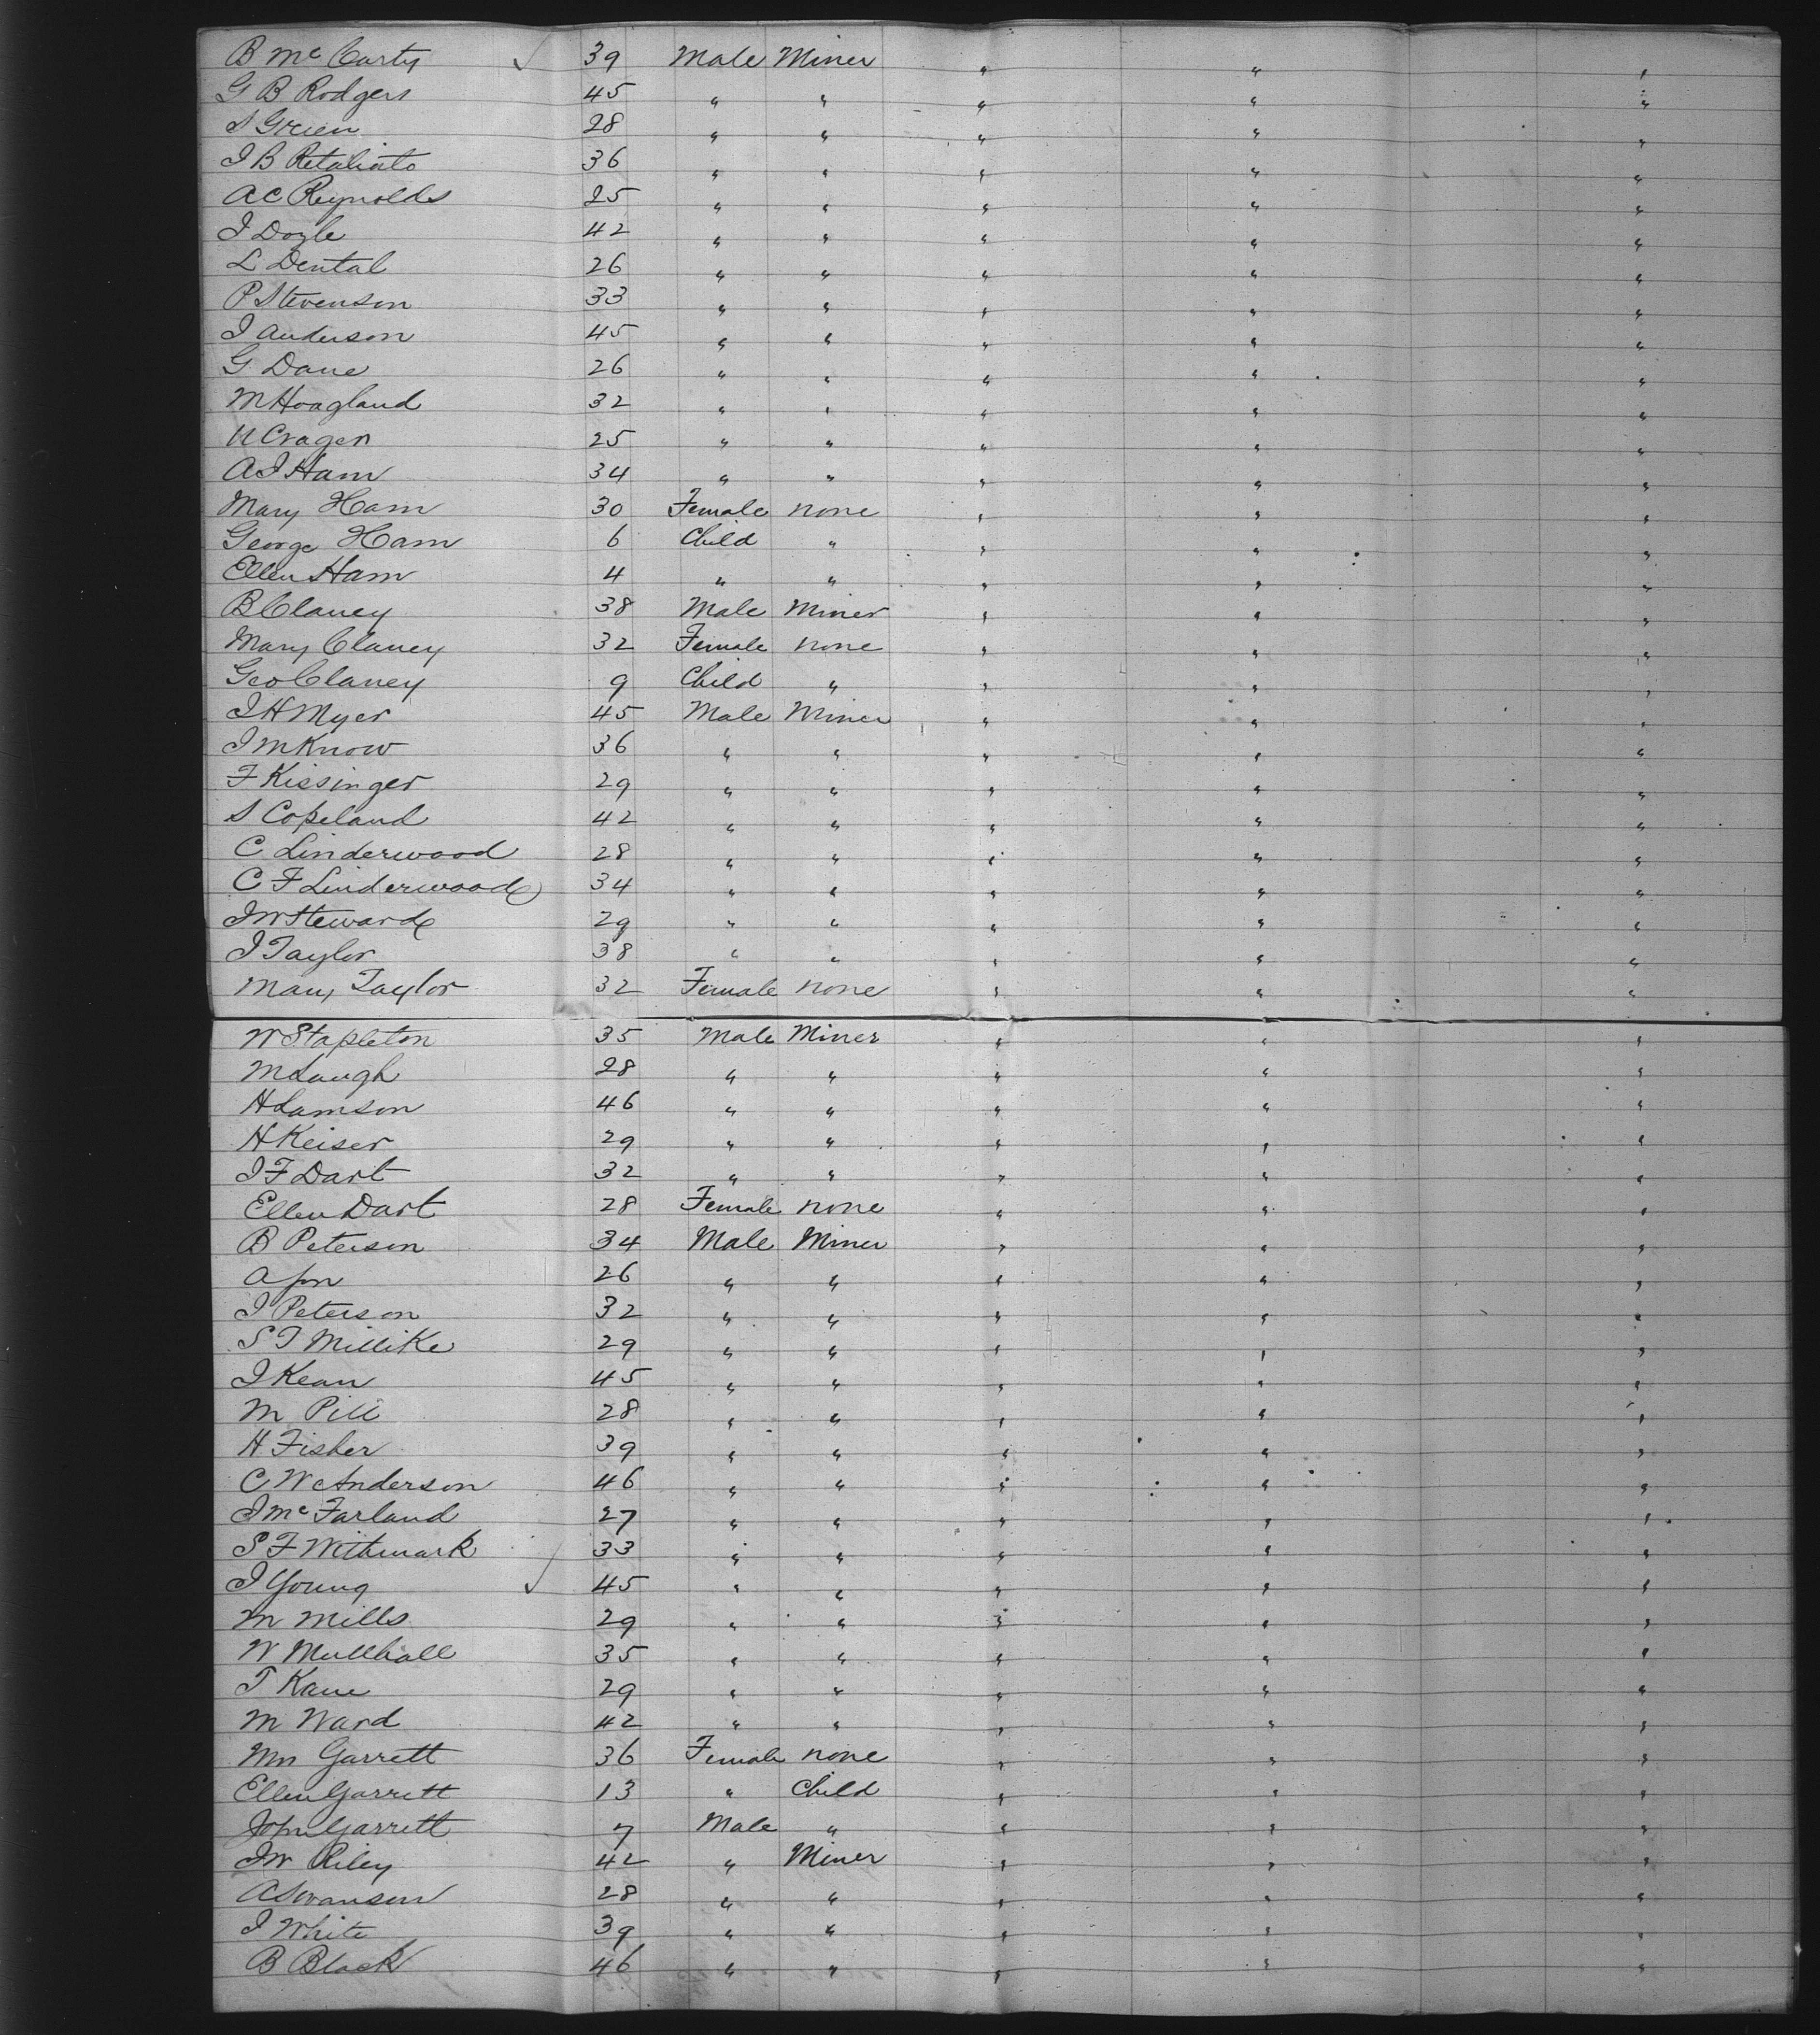 B McCarty ✓ 39 Male Miner " " "
G B Rodgers 45 " " " " "
S Green 28 " " " " "
J B Retaliato 36 " " " " "
A C Reynolds 25 " " " " "
J Doyle 42 " " " " "
L Dental 26 " " " " "
P Stevenson 33 " " " " "
J Anderson 45 " " " " "
G Dane 26 " " " " "
M Hoagland 32 " " " " "
U Cragen 25 " " " " "
A J Ham 34 " " " " "
Mary Ham 30 Female none " " "
George Ham 6 Child " " " "
Ellen Ham 4 " " " " "
B Claney 38 Male Miner " " "
Mary Claney 32 Female none " " "
Geo Claney 9 Child " " " "
J H Myer 45 Male Miner " " "
J M Know 36 " " " " "
F Kissinger 29 " " " " "
S Copeland 42 " " " " "
C Linderwood 28 " " " " "
C F Linderwood 34 " " " " "
J W Steward 29 " " " " "
J Taylor 38 " " " " "
Mary Taylor 32 Female none " " "
W Stapleton 35 Male Miner " " "
M Laugh 28 " " " " "
H Lamson 46 " " " " "
H Keiser 29 " " " " "
J F Dart 32 " " " " "
Ellen Dart 28 Female none " " "
B Peterson 34 Male Miner " " "
A 26 " " " " "
J Peterson 32 " " " " "
S T Millike 29 " " " " "
J Kean 45 " " " " "
M Pill 28 " " " " "
H Fisher 39 " " " " "
C W Anderson 46 " " " " "
J McFarland 27 " " " " "
S F Withmark 33 " " " " "
J Young ✓ 45 " " " " "
M Mills 29 " " " " "
W Mullhall 35 " " " " "
T Kane 29 " " " " "
M Ward 42 " " " " "
Mn Garrett 36 Female none " " "
Ellen Garrett 13 " Child " " "
John Garrett 7 Male " " " "
J W Riley 42 " Miner " " "
A Swanson 28 " " " " "
J White 39 " " " " "
B Black 46 " " " " "